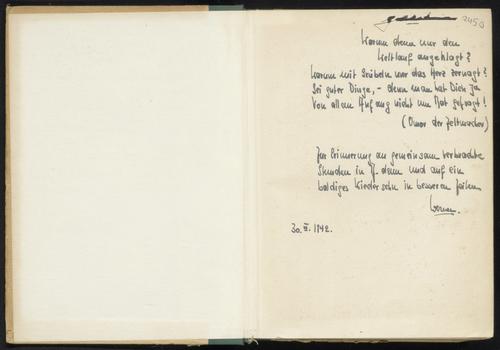 2450
Warum denn nur den
Weltlauf angeklagt?
Warum mit Grübeln nur das Herz zernagt?
Sei guter Dinge, - denn man hat Dich ja
Von allem Anfang nicht um Rat gefragt!
(Omar der Zeltmacher)
Zur Erinnerung an gemeinsam verbrachte
Stunden in denn und auf ein
baldiges Wiedersehn in besseren Zeiten
30. 1942.